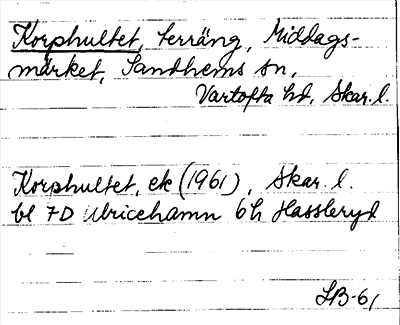 Korphultet, terräng, Middags-
märket, Sandhems sn,
Vartofta hd, Skar. l.
Korphultet, ek (1961), Skar. l.
bl 7D Ulricehamn 6h Hassleryd
LB-61